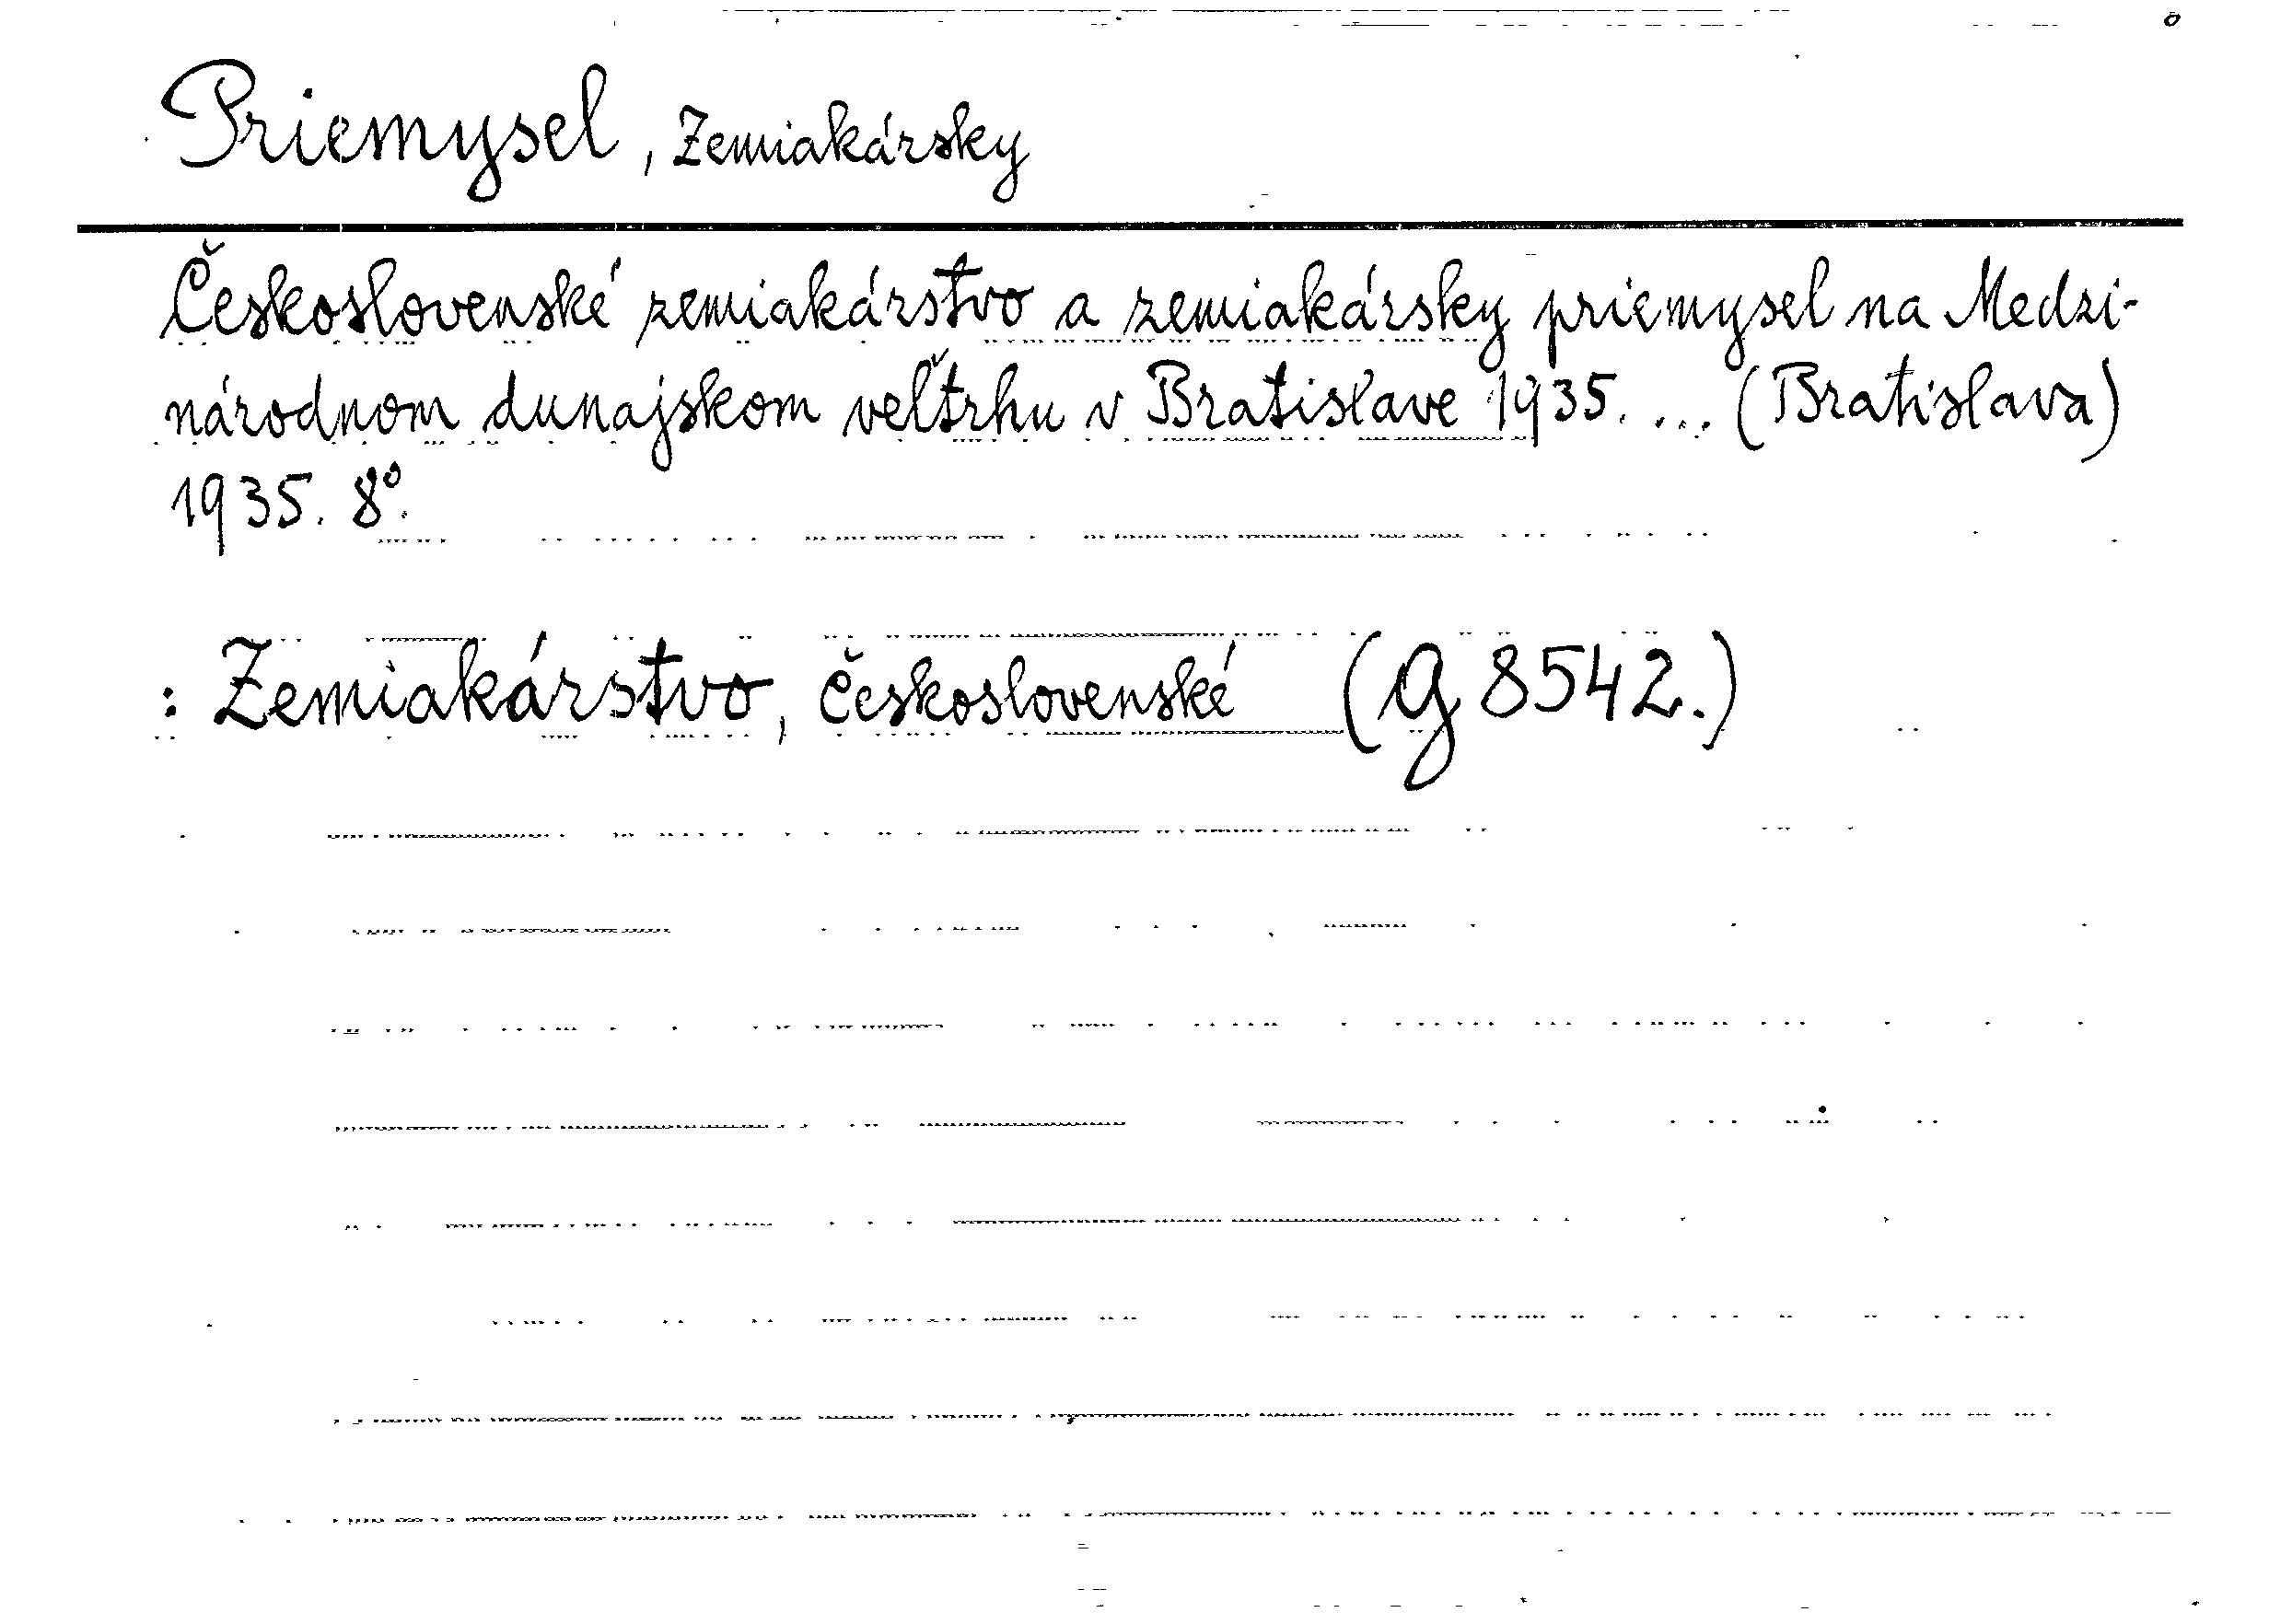 Priemysel, Zemiakársky
Československé zemiakárstvo a zemiakársky priemysel na Medzi-
národnom dunajskom veľtrhu v Bratislave 1935. ... (Bratislava)
1935. 8°.
: Zemiakárstvo, Československé (g 8542.)